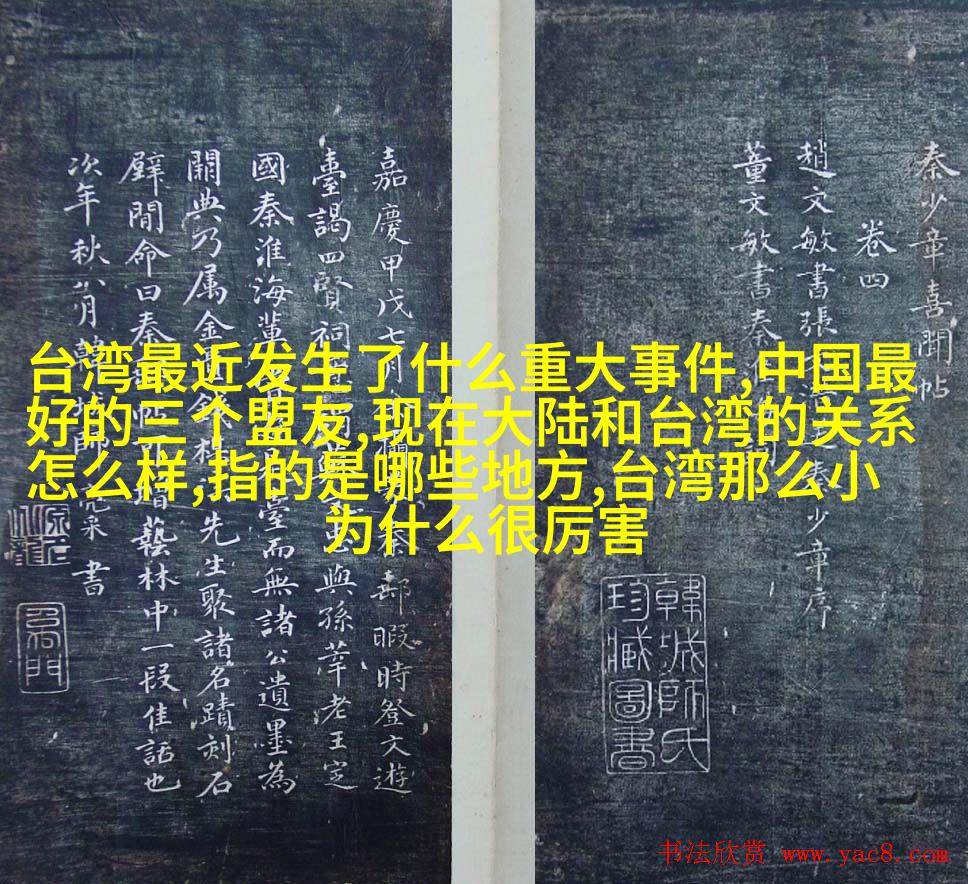 台湾最近发生了什么重大事件,中国最
好的三个盟友,现在大陆和台湾的关系
怎么样,指的是哪些地方,台湾那么小
为什么很厉害
秦少章喜聞帖
卷四
趙文敏書張
董文敏書秦
少章序
嘉慶甲戌七月
秦郵暇時登文遊
臺謁四賢祠
與孫莘老王定
國秦淮海
臺而無諸公遺墨為
闕典乃属金
先生聚諸名蹟刻石
壁間命曰秦郵帖
藝林中一段佳話也
次年秋八月韓城師亮采書
韓城師氏
珍臧圖書
书法欣赏 www.yac8.com